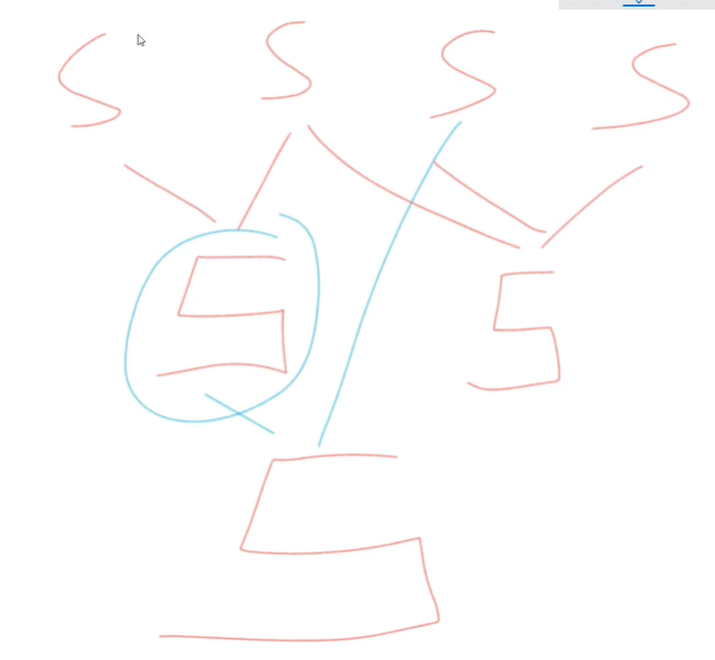 S S S S
5 5
5